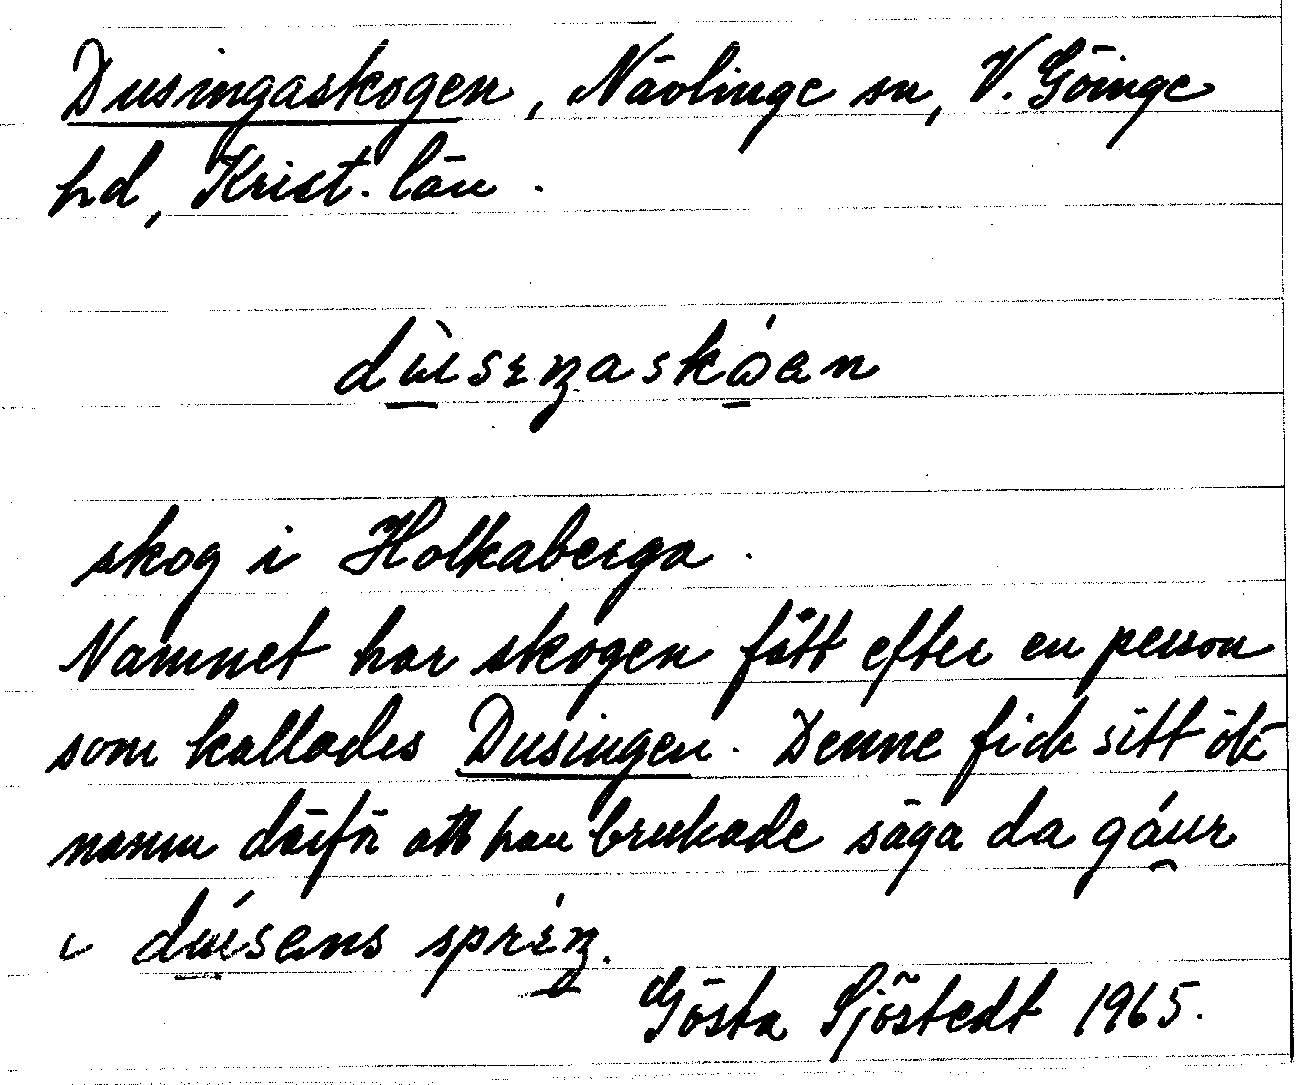 Dusingaskogen, Nävlinge sn, V. Göinge
hd, Krist. län.
dùsɛŋaskóan
skog i Holkaberga.
Namnet har skogen fått efter en person
som kallades Dusingen. Denne fick sitt ök
namn därför att han brukade säga da gáur
i dúsens spréŋ.
Gösta Sjöstedt 1965.